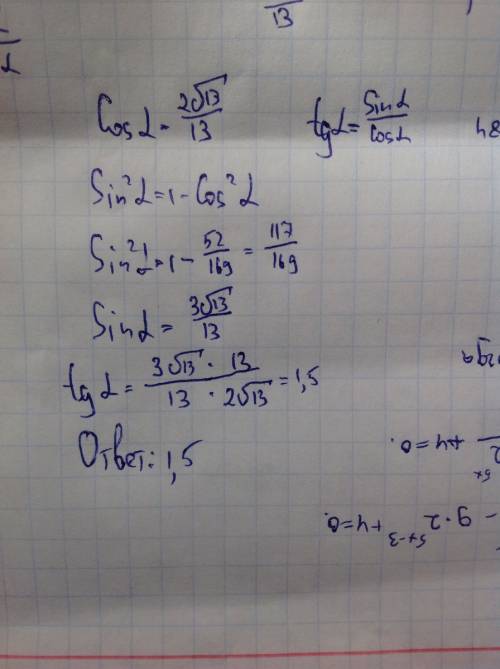 13
Cos α = 2√13/13 tg α = Sin α/Cos α
Sin²α = 1 - Cos²α
Sin²α = 1 - 52/169 = 117/169
Sin α = 3√13/13
tg α = 3√13 · 13/13 · 2√13 = 1,5
Ответ: 1,5
5x + 4 = 0.
- 9·2^5x-3 + 4 = 0.